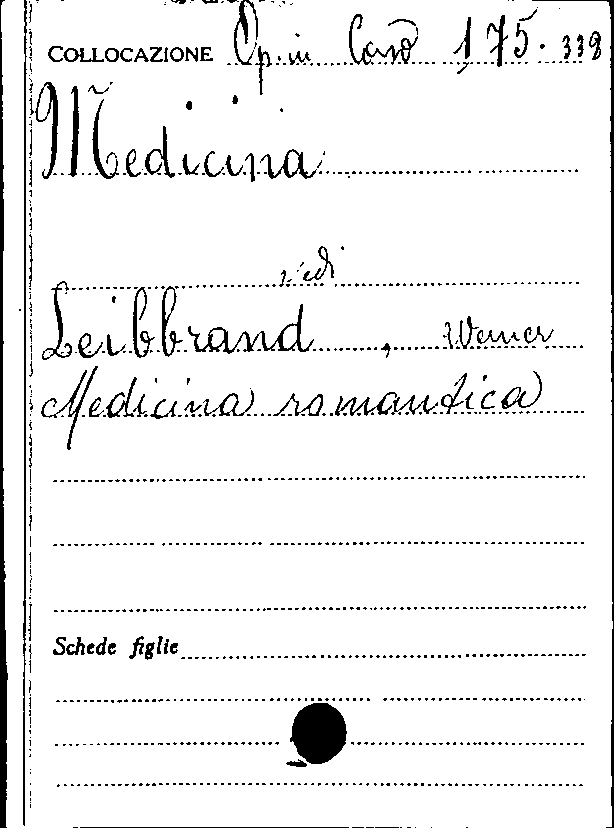 COLLOCAZIONE Op. in Caso 175. 338
Medicina
vedi
Leibbrand, Werner
Medicina romantica
Schede figlie